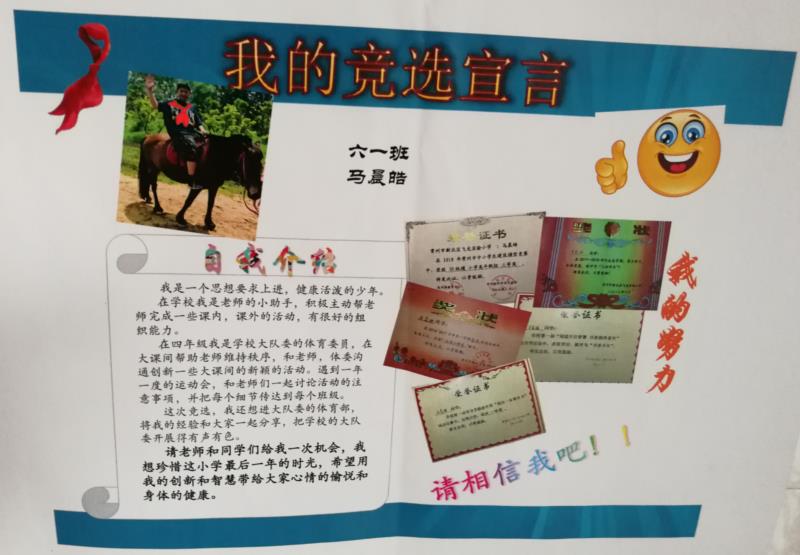 我的竞选宣言
六一班
马晨皓
自我介绍
我是一个思想要求上进，健康活泼的少年。
在学校我是老师的小助手，积极主动帮老
师完成一些课内，课外的活动，有很好的组
织能力。
在四年级我是学校大队委的体育委员，在
大课间帮助老师维持秩序，和老师，体委沟
通创新一些大课间的新颖的活动。遇到一年
一度的运动会，和老师们一起讨论活动的注
意事项，并把每个细节传达到每个班级。
这次竞选，我还想进大队委的体育部，
将我的经验和大家一起分享，把学校的大队
委开展得有声有色。
请老师和同学们给我一次机会，我
想珍惜这小学最后一年的时光，希望用
我的创新和智慧带给大家心情的愉悦和
身体的健康。
证书
奖状
荣誉证书
荣誉证书
我的努力
请相信我吧！！